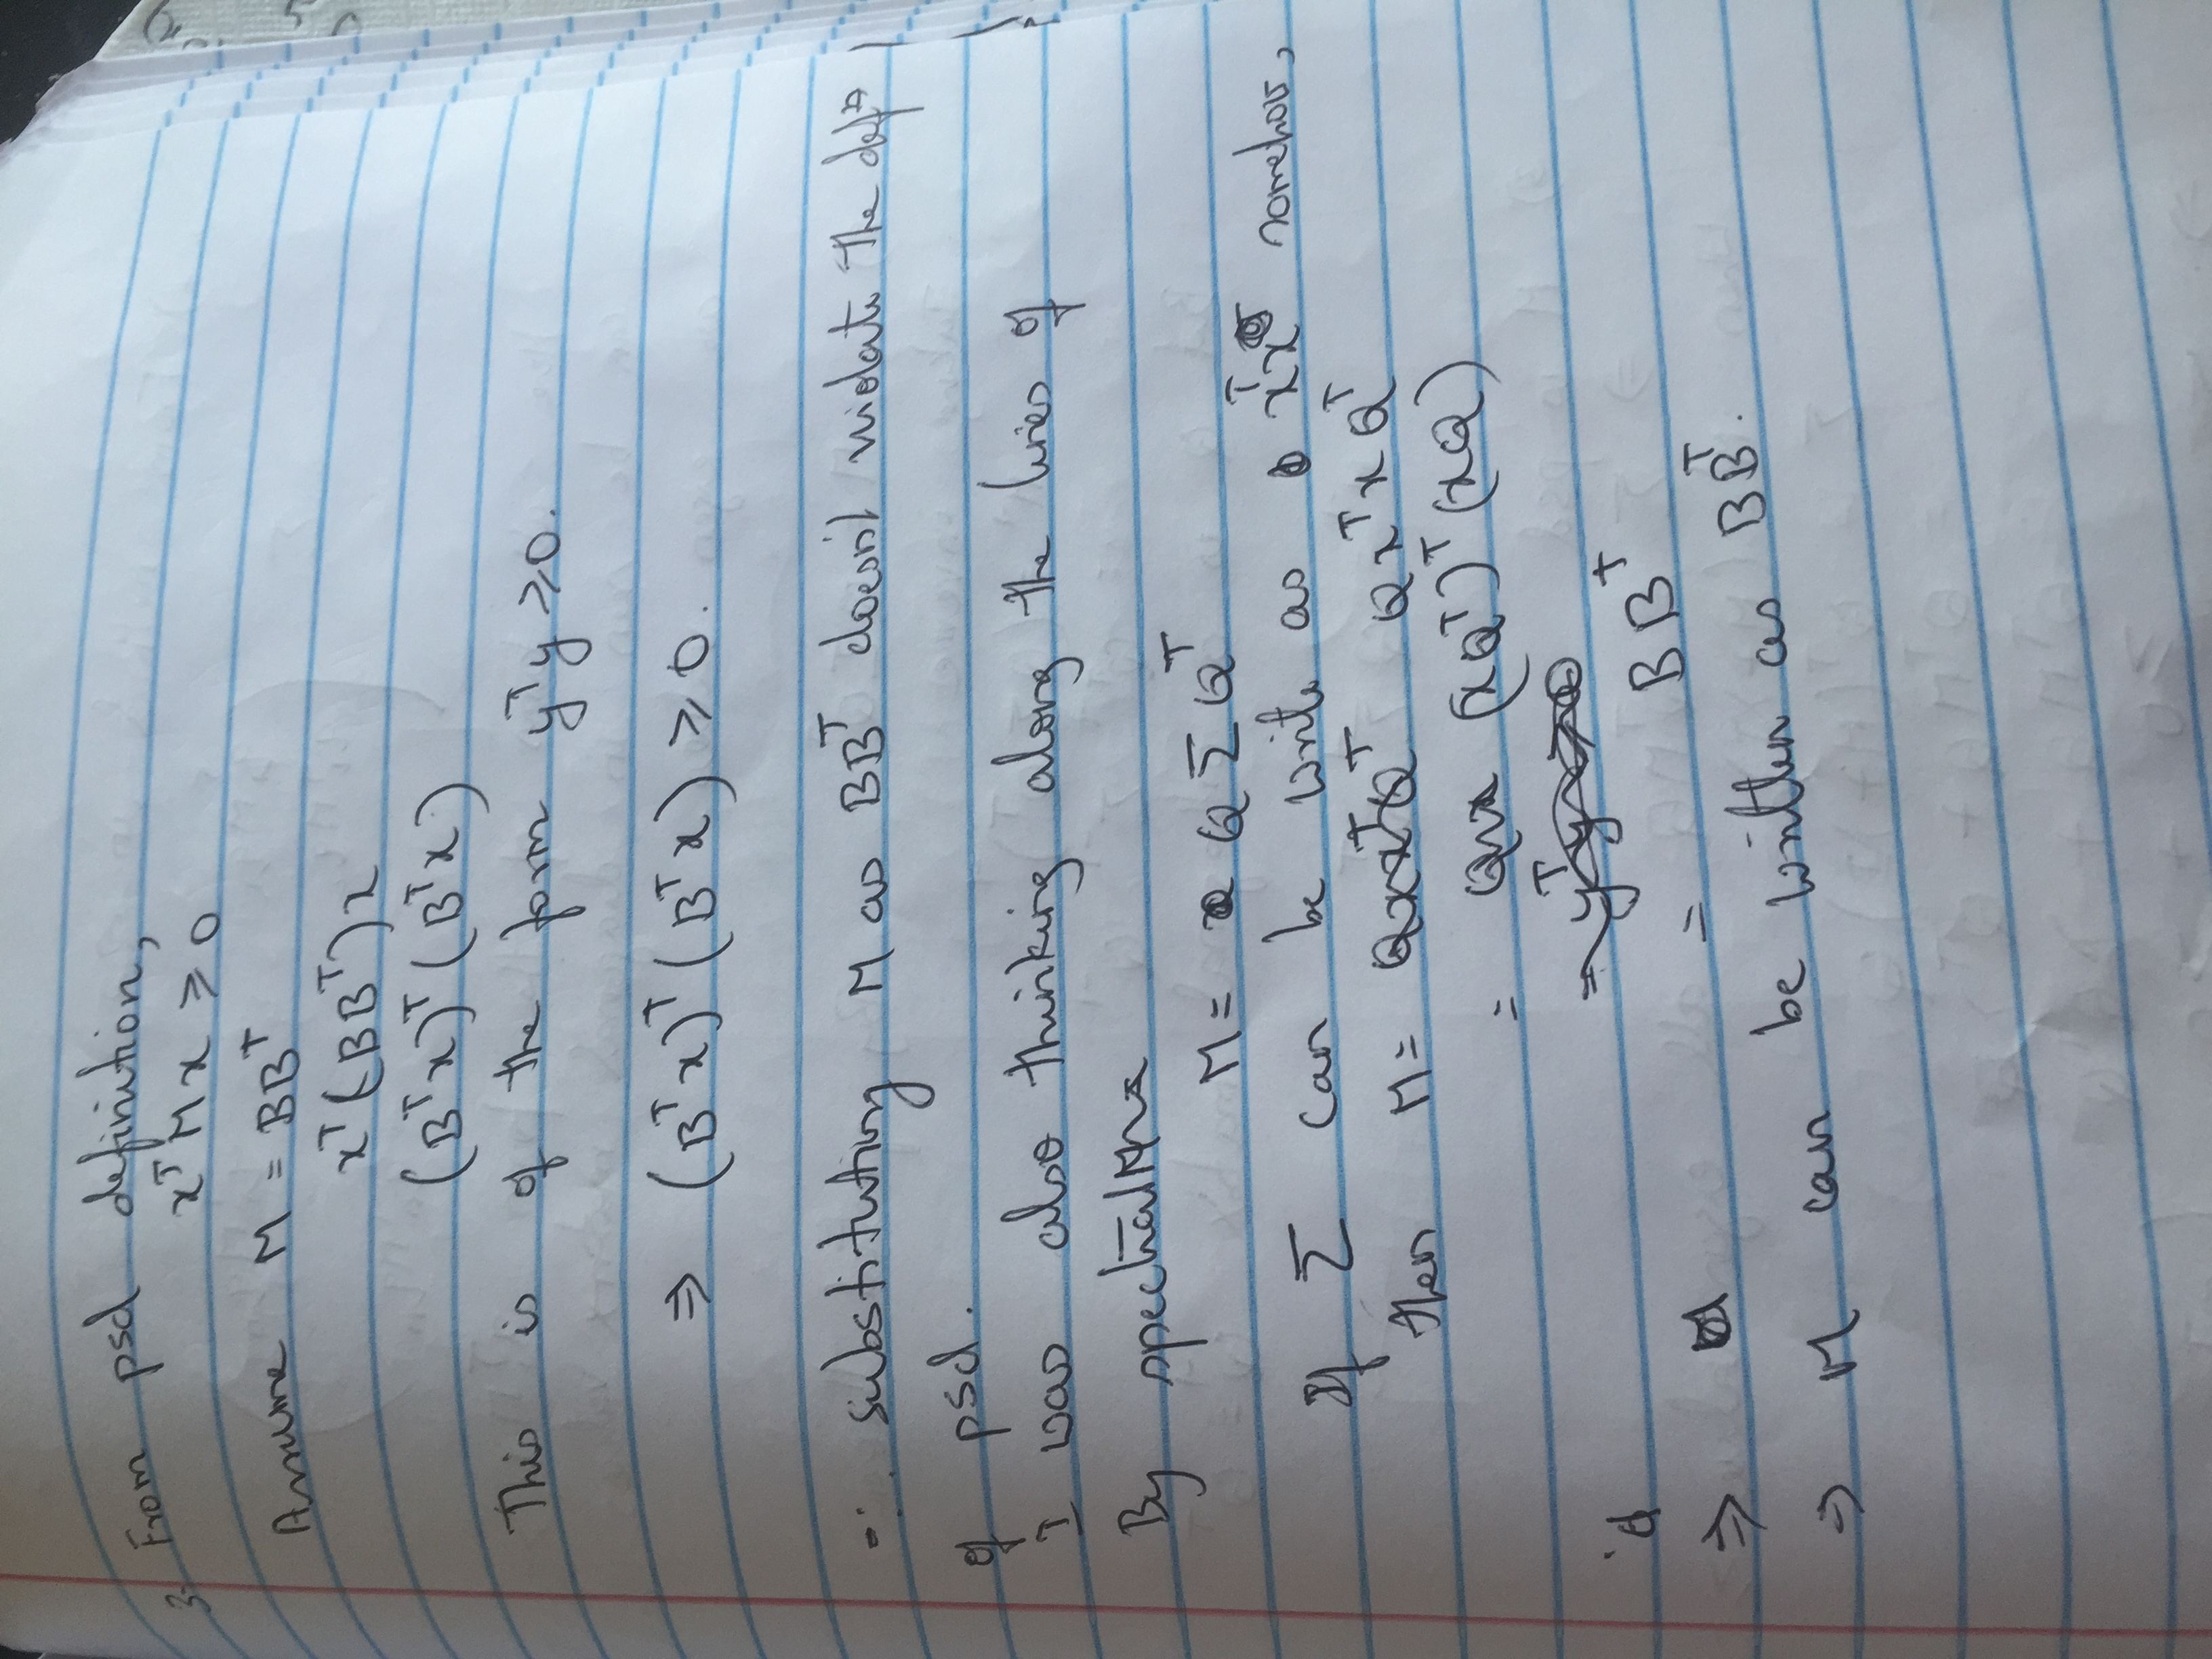 3. From psd definition,
xᵀMx ≥ 0
Assume M = BBᵀ
xᵀ(BBᵀ)x
(Bᵀx)ᵀ(Bᵀx)
This is of the form yᵀy ≥ 0.
⇒ (Bᵀx)ᵀ(Bᵀx) ≥ 0.
∴ substituting M as BBᵀ doesn't violate the defⁿ
of psd.
I was also thinking along the lines of
By spectral
M = QΣQᵀ
If Σ can be write as xᵀx somehow,
then M = QxxᵀQᵀ QxᵀxQᵀ
= Qx (xQᵀ)ᵀ(xQ)
= yᵀy ≥ 0
= BBᵀ
⇒
⇒ M can be written as BBᵀ.